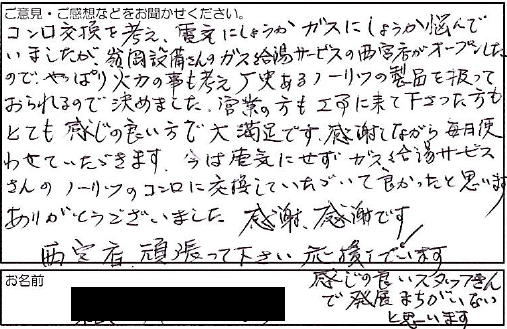 ご意見・ご感想などをお聞かせください。
コンロ交換を考え、電気にしようかガスにしようか悩んで
いましたが、翁岡設備さんのガス給湯サービスの西宮店がオープンした
ので、やっぱり火力の事も考え歴史あるノーリツの製品を扱って
おられるので決めました。営業の方も工事に来て下さった方も
とても感じの良い方で大満足です。感謝しながら毎日使
わせていただきます。今は電気にせずガス給湯サービス
さんのノーリツのコンロに交換していただいて良かったと思います
ありがとうございました 感謝、感謝です
西宮店、頑張って下さい 応援しています
お名前
感じの良いスタッフさん
で発展まちがいない
と思います